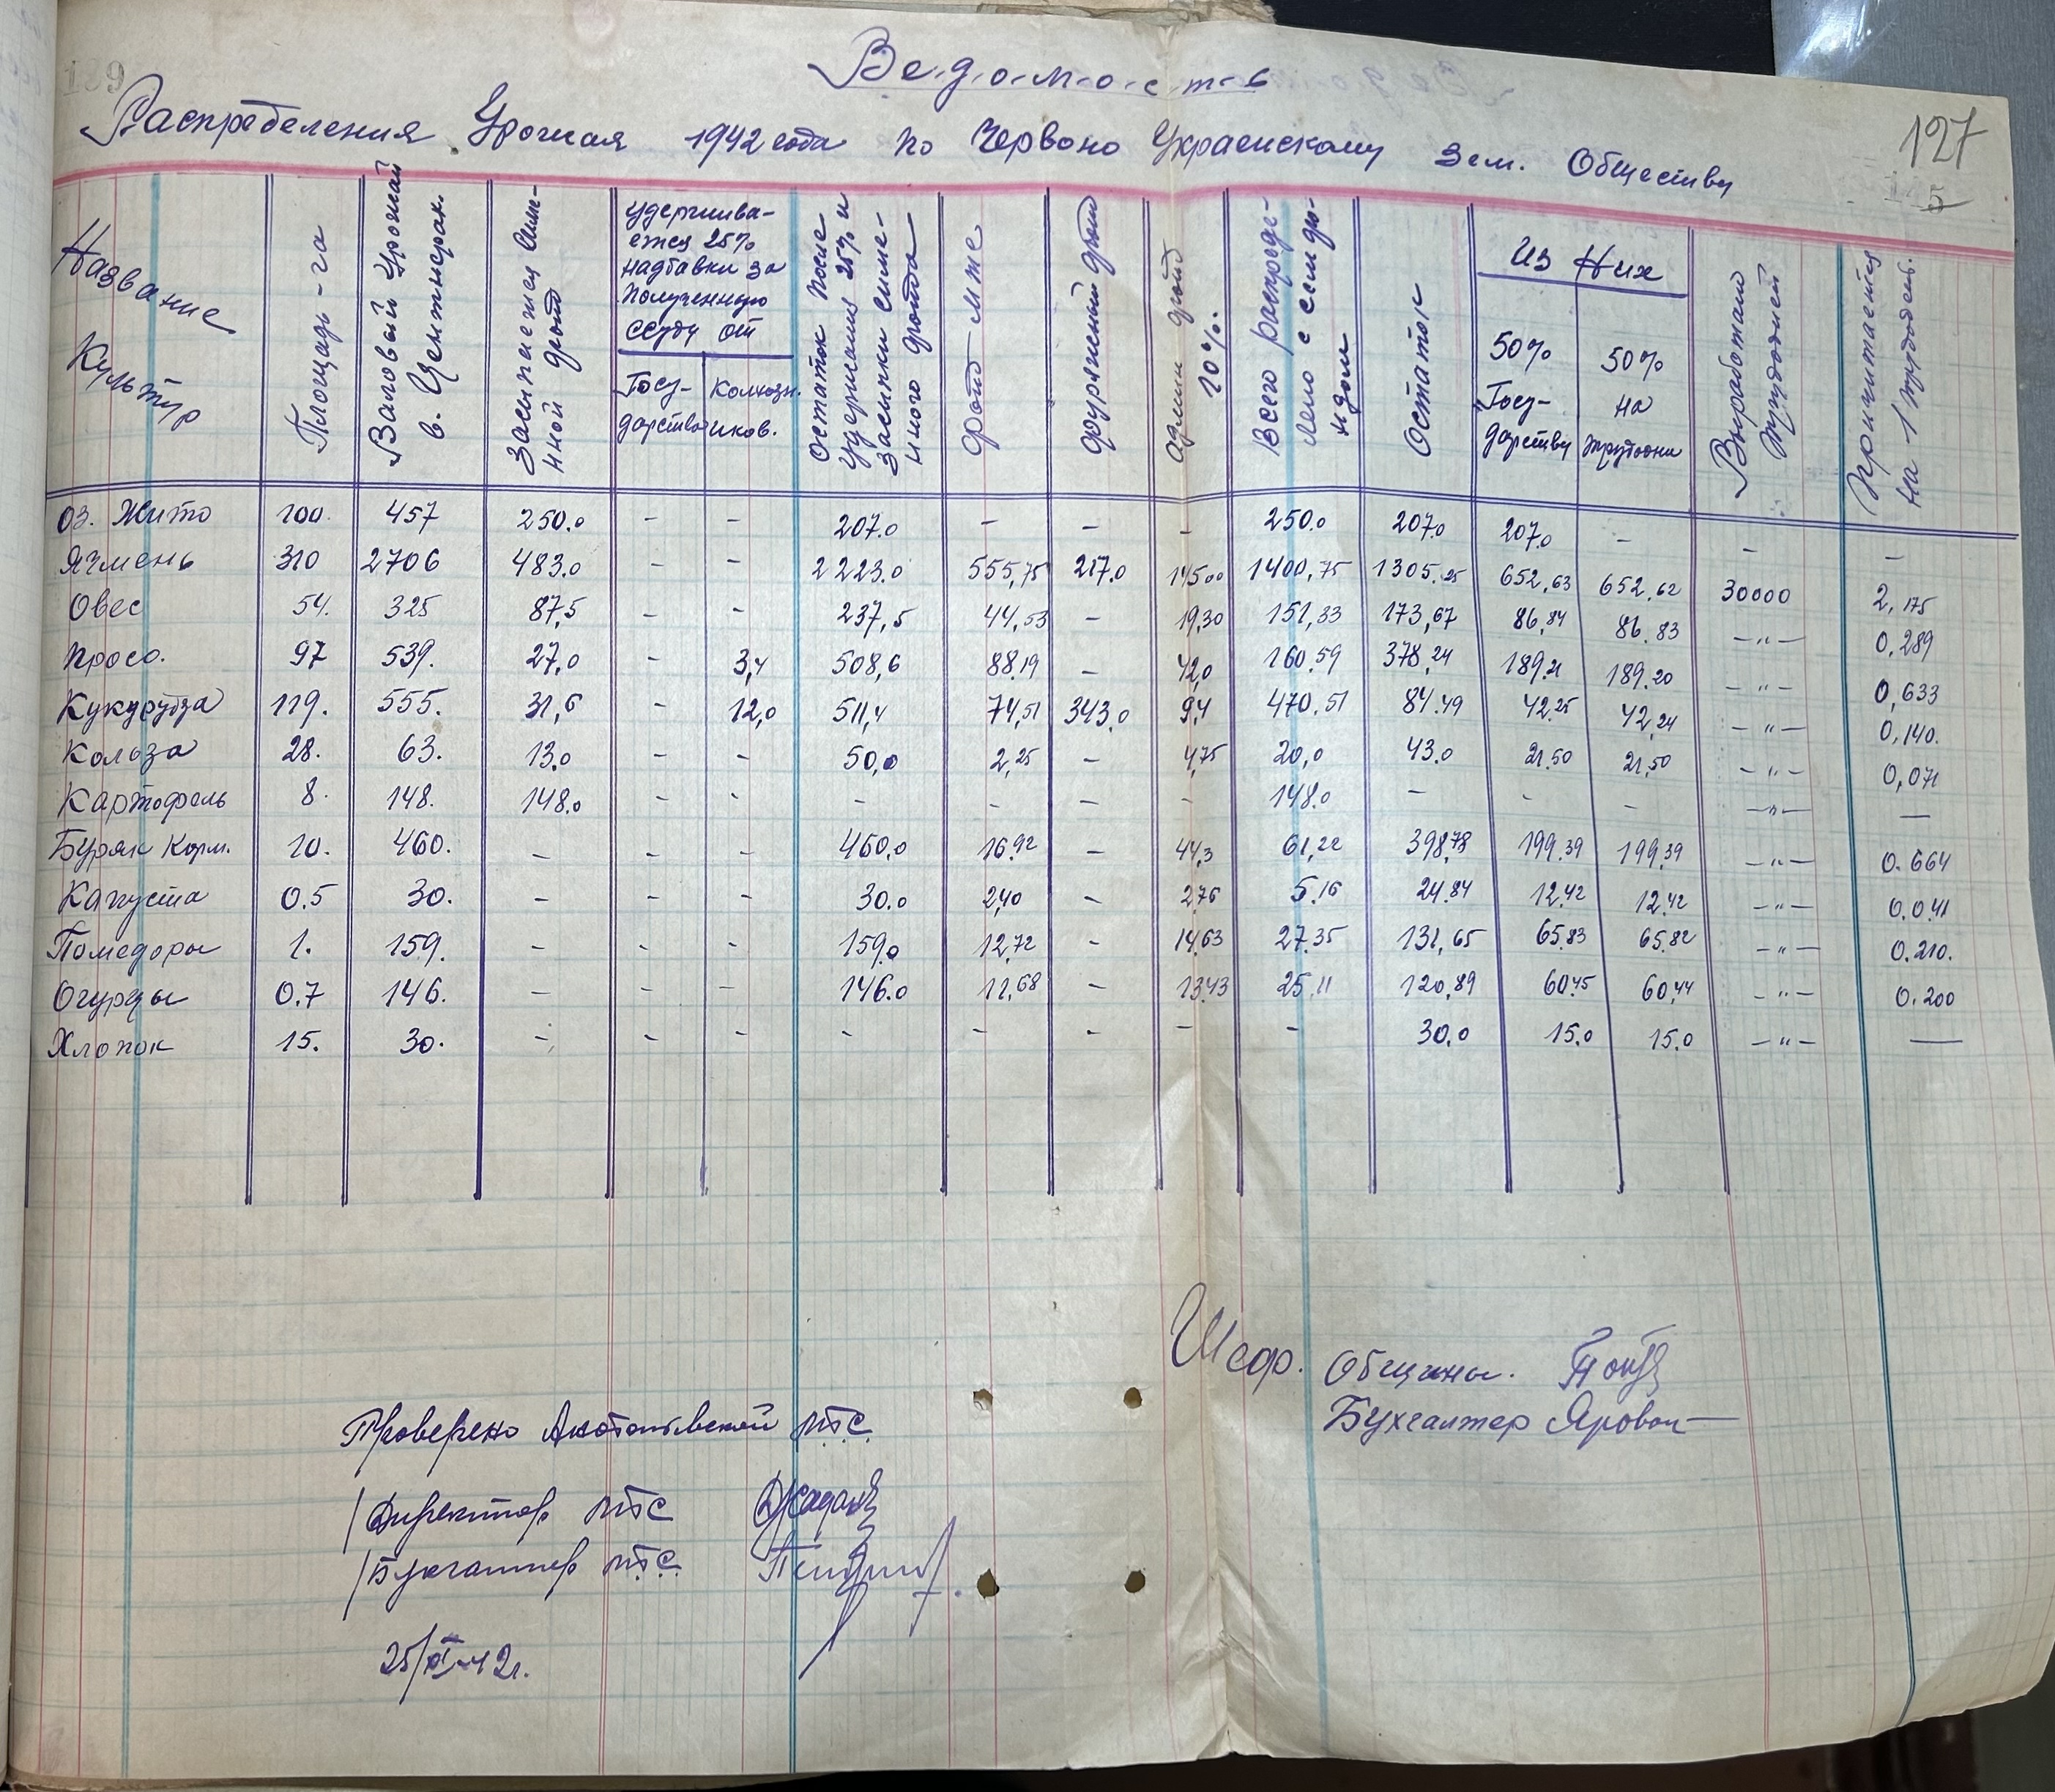 Ведомость
Распределения Урожая 1942 года по Червоно Украинскому Зем. Обществу
127
Название Культур
Площадь - га
Валовый Урожай в. Центнерах.
Засыпается Семенной фонд
удерживается 25% надбавки за полученную ссуду от
Государства
Колхозников.
Остаток после удержания 25% и засыпки семенного фонда
фонд мтс
фуражный фонд
админ фонд 10%.
Всего распределено с сем фондом
Остаток
Из Них
50% Государству
50% на трудодни
Выработано трудодней
причитается на 1 трудодень.
Оз. Жито 100. 457 250.0 - - 207.0 - - - 250.0 207.0 207.0 - - -
Ячмень 310 2706 483.0 - - 2223.0 555,75 217.0 145.00 1400,75 1305.25 652,63 652,62 30000 2,175
Овес 54. 325 87,5 - - 237,5 44,53 - 19,30 151,33 173,67 86,84 86.83 -"- 0,289
Просо. 97 539. 27,0 - 3,4 508,6 88.19 - 42,0 160.59 378,24 189.21 189.20 -"- 0,633
Кукурудза 119. 555. 31,6 - 12,0 511,4 74,51 343.0 9,4 470.51 84.49 42.25 42,24 -"- 0,140.
Кользa 28. 63. 13.0 - - 50,0 2,25 - 4,75 20,0 43.0 21.50 21,50 -"- 0,071
Картофель 8. 148. 148.0 - - - - - - 148.0 - - - -"- —
Буряк Корм. 10. 460. - - - 460,0 16.92 - 44,3 61,22 398,78 199.39 199,39 -"- 0.664
Капуста 0.5 30. - - - 30.0 2,40 - 2,76 5.16 24.84 12,42 12.42 -"- 0.041
Помедоры 1. 159. - - - 159.0 12,72 - 14,63 27.35 131,65 65.83 65,82 -"- 0.210.
Огурцы 0.7 146. - - - 146.0 11,68 - 13.43 25.11 120,89 60.45 60,44 -"- 0.200
Хлопок 15. 30. - - - - - - - - 30.0 15.0 15.0 -"- —
Шеф. Общины.
Бухгалтер Яровой
Проверено МТС
/Директор МТС
/Бухгалтер МТС.
25/XI-42г.